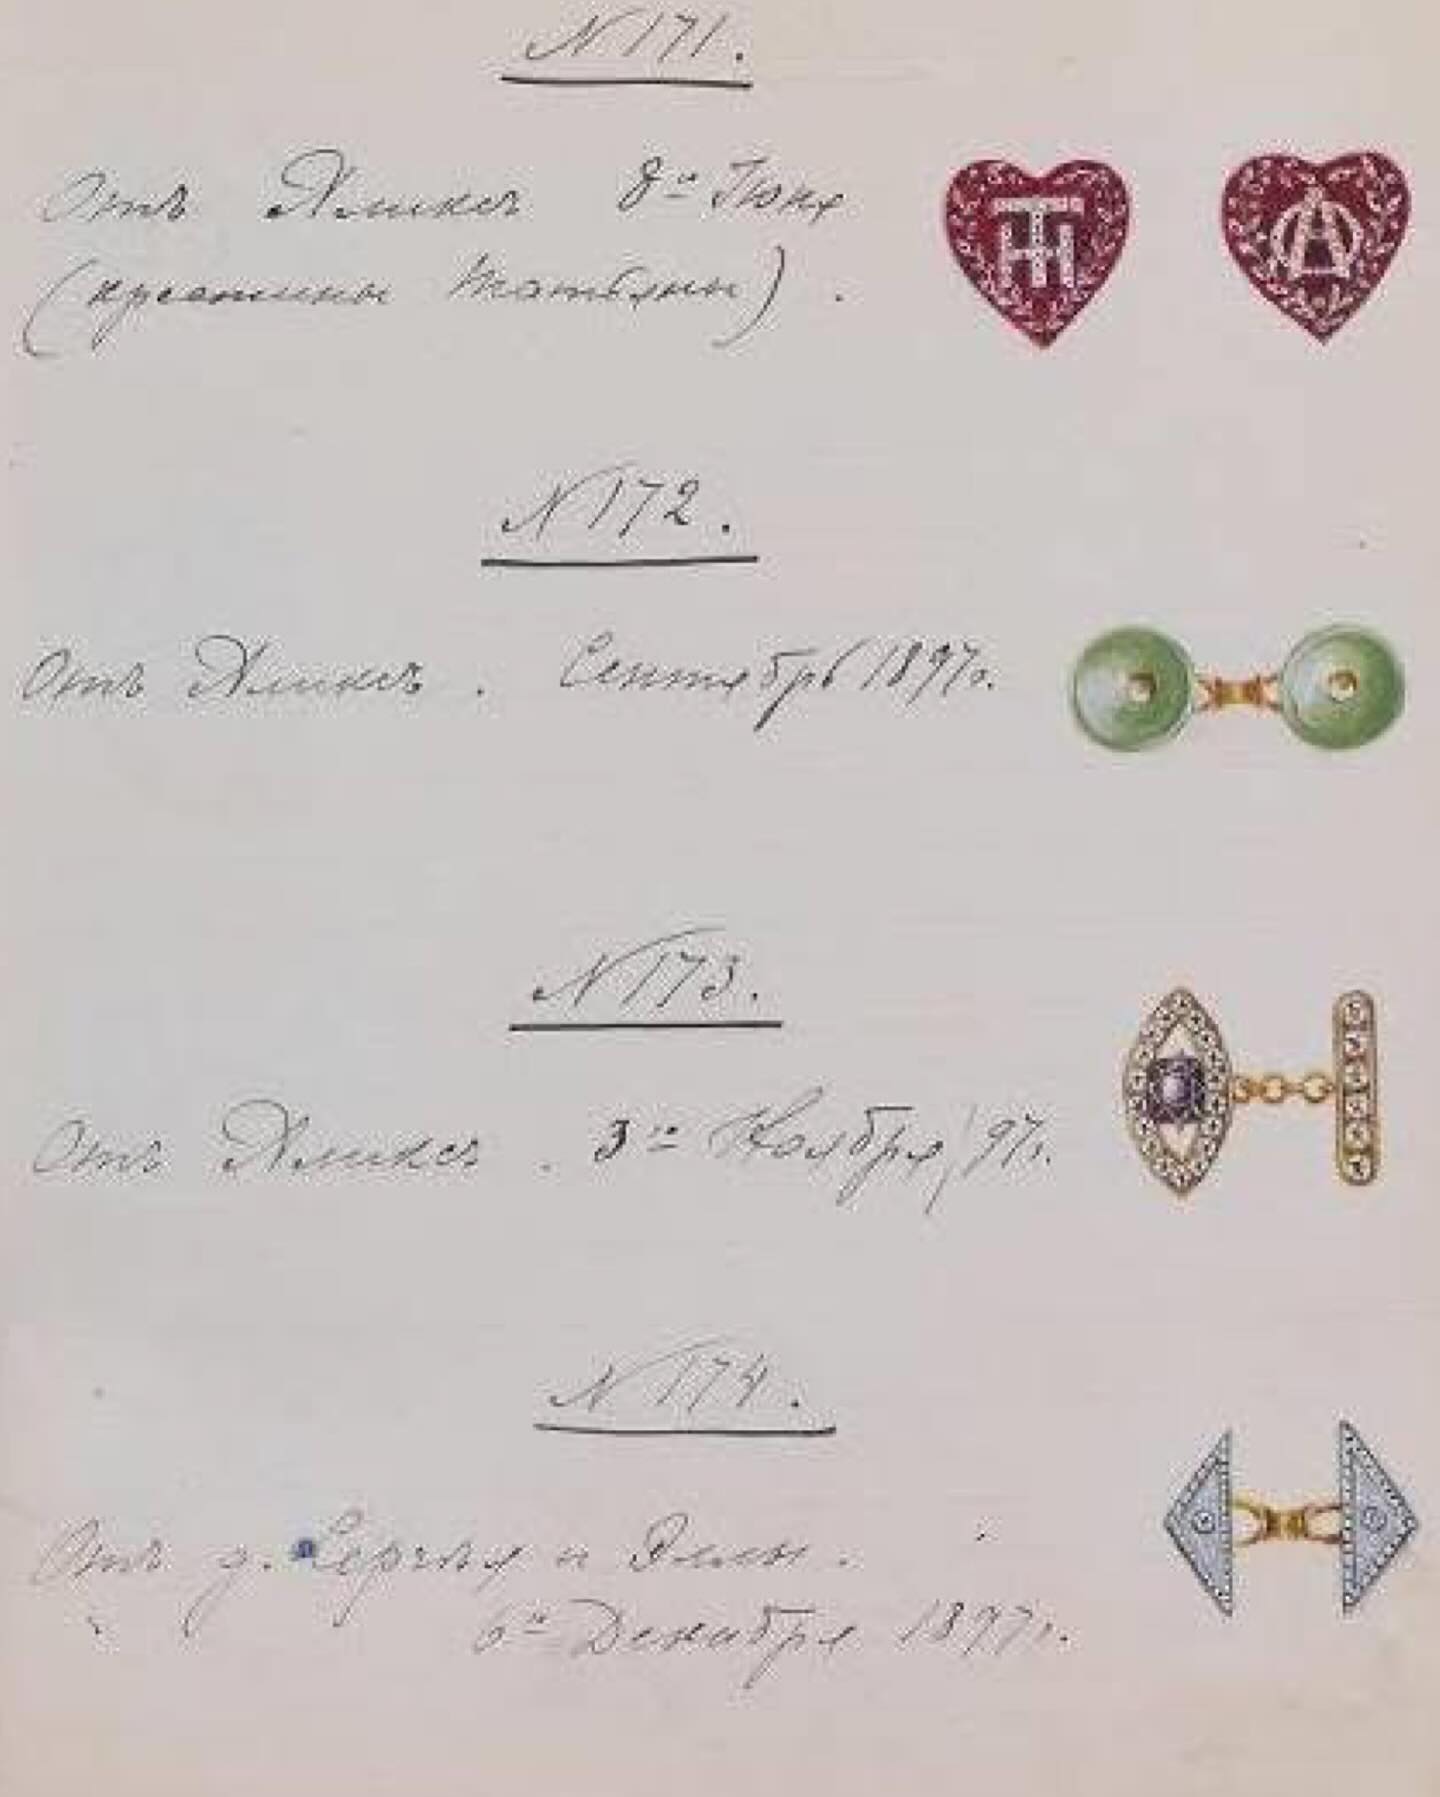 N 171.
Отъ Аликсъ 8го Iюня
(крестины Татьяны).
N 172.
Отъ Аликсъ. Сентябрь 1897г.
N 173.
Отъ Аликсъ. 3го Ноября 97г.
N 174.
Отъ д. Сергѣя и Эллы.
6го Декабря 1897г.